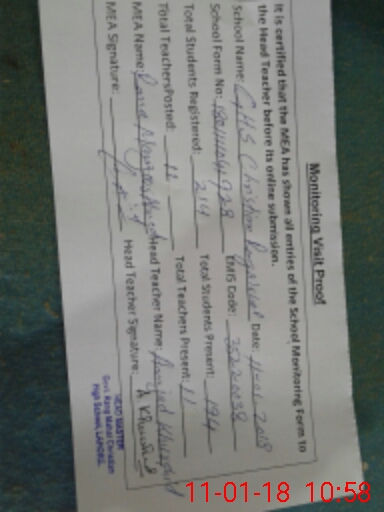 Monitoring Visit Proof
It is certified that the MEA has shown all entries of the School Monitoring Form to
the Head Teacher before its online submission.
School Name: GHS Christian Date: 11-01-2018
School Form No: EMIS Code:
Total Students Registered: 214 Total Students Present: 194
Total TeachersPosted: 11 Total Teachers Present: 11
MEA Name: Rana Head Teacher Name: Amjad
MEA Signature: Head Teacher Signature:
HEAD MASTER
Govt. Rang Mahal Christian
High School, LAHORE.
11-01-18 10:58